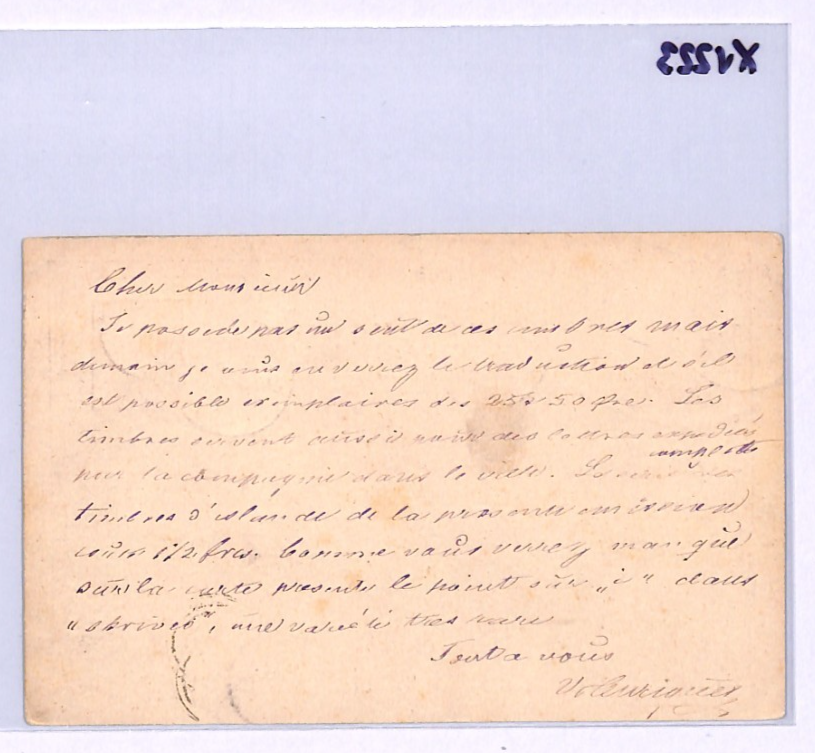 X12223
Cher Monsieur
Je possede pas un seul de ces timbres mais
demain je vous enverrez le traduction et s'il
est possible exemplaires des 25 & 50 Øre. Les
timbres servent aussi des lettres expediés
par la compagnie dans le ville. La complette
timbres d'islande de la presente emission
1/2 frcs. Comme vous verrez manque
sur la carte presente le point sur „i“ dans
"skrives, une varieté tres rare
Tout a vous